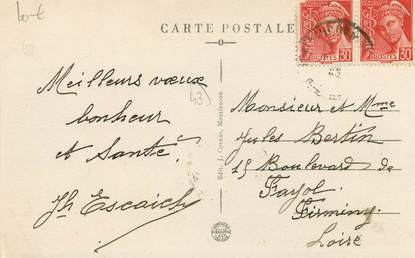 10-€
CARTE POSTALE
Meilleurs vœux
bonheur
et Santé.
Jh Escaich
(43)
Edit. J. Convert, Montfaucon
POSTES 30
POSTES 30
43
Monsieur et Mme
Jules Bertin
25 Boulevard de
Fayol.
Firminy.
Loire